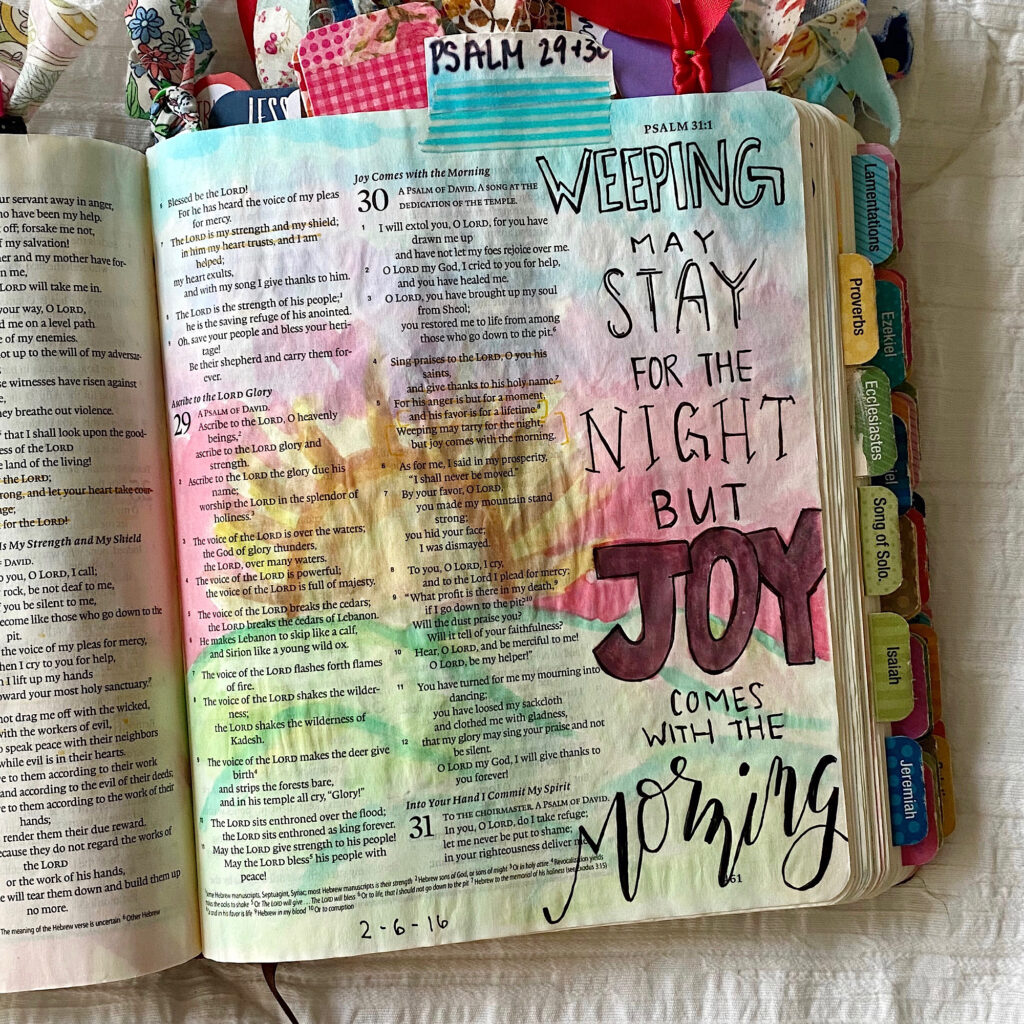 PSALM 29+30
JESS
PSALM 31:1
ur servant away in anger,
ho have been my help.
off; forsake me not,
f my salvation!
her and my mother have for-
n me,
LORD will take me in.
your way, O LORD,
d me on a level path
e of my enemies.
ot up to the will of my adversar-
e witnesses have risen against
ney breathe out violence.
that I shall look upon the good-
ess of the LORD
e land of the living!
the LORD;
rong, and let your heart take cour-
age;
for the LORD!
Is My Strength and My Shield
DAVID.
o you, O LORD, I call;
rock, be not deaf to me,
if you be silent to me,
ecome like those who go down to the
pit.
the voice of my pleas for mercy,
hen I cry to you for help,
n I lift up my hands
oward your most holy sanctuary.
not drag me off with the wicked,
with the workers of evil,
o speak peace with their neighbors
while evil is in their hearts.
e to them according to their work
and according to the evil of their deeds;
ve to them according to the work of their
hands;
render them their due reward.
ecause they do not regard the works of
the LORD
or the work of his hands,
e will tear them down and build them up
no more.
The meaning of the Hebrew verse is uncertain 6 Other Hebrew
6 Blessed be the LORD!
For he has heard the voice of my pleas
for mercy.
7 The LORD is my strength and my shield;
in him my heart trusts, and I am
helped;
my heart exults,
and with my song I give thanks to him.
8 The LORD is the strength of his people;
he is the saving refuge of his anointed.
9 Oh, save your people and bless your heri-
tage!
Be their shepherd and carry them for-
ever.
Ascribe to the LORD Glory
29 A PSALM OF DAVID.
Ascribe to the LORD, O heavenly
beings,2
ascribe to the LORD glory and
strength.
2 Ascribe to the LORD the glory due his
name;
worship the LORD in the splendor of
holiness.3
3 The voice of the LORD is over the waters;
the God of glory thunders,
the LORD, over many waters.
4 The voice of the LORD is powerful;
the voice of the LORD is full of majesty.
5 The voice of the LORD breaks the cedars;
the LORD breaks the cedars of Lebanon.
6 He makes Lebanon to skip like a calf,
and Sirion like a young wild ox.
7 The voice of the LORD flashes forth flames
of fire.
8 The voice of the LORD shakes the wilder-
ness;
the LORD shakes the wilderness of
Kadesh.
9 The voice of the LORD makes the deer give
birth4
and strips the forests bare,
and in his temple all cry, "Glory!"
10 The LORD sits enthroned over the flood;
the LORD sits enthroned as king forever.
11 May the LORD give strength to his people!
May the LORD bless5 his people with
peace!
Joy Comes with the Morning
30 A PSALM OF DAVID. A SONG AT THE
DEDICATION OF THE TEMPLE.
1 I will extol you, O LORD, for you have
drawn me up
and have not let my foes rejoice over me.
2 O LORD my God, I cried to you for help,
and you have healed me.
3 O LORD, you have brought up my soul
from Sheol;
you restored me to life from among
those who go down to the pit.6
4 Sing praises to the LORD, O you his
saints,
and give thanks to his holy name.7
5 For his anger is but for a moment,
and his favor is for a lifetime.8
Weeping may tarry for the night,
but joy comes with the morning.
6 As for me, I said in my prosperity,
"I shall never be moved."
7 By your favor, O LORD,
you made my mountain stand
strong;
you hid your face;
I was dismayed.
8 To you, O LORD, I cry,
and to the Lord I plead for mercy:
9 "What profit is there in my death,9
if I go down to the pit?10
Will the dust praise you?
Will it tell of your faithfulness?
10 Hear, O LORD, and be merciful to me!
O LORD, be my helper!"
11 You have turned for me my mourning into
dancing;
you have loosed my sackcloth
and clothed me with gladness,
12 that my glory may sing your praise and not
be silent.
O LORD my God, I will give thanks to
you forever!
Into Your Hand I Commit My Spirit
31 TO THE CHOIRMASTER. A PSALM OF DAVID.
In you, O LORD, do I take refuge;
let me never be put to shame;
in your righteousness deliver me
WEEPING
MAY
STAY
FOR THE
NIGHT
BUT
JOY
COMES
WITH THE
Morning
2-6-16
Lamentations
Proverbs
Ezekiel
Ecclesiastes
Song of Solo.
Isaiah
Jeremiah